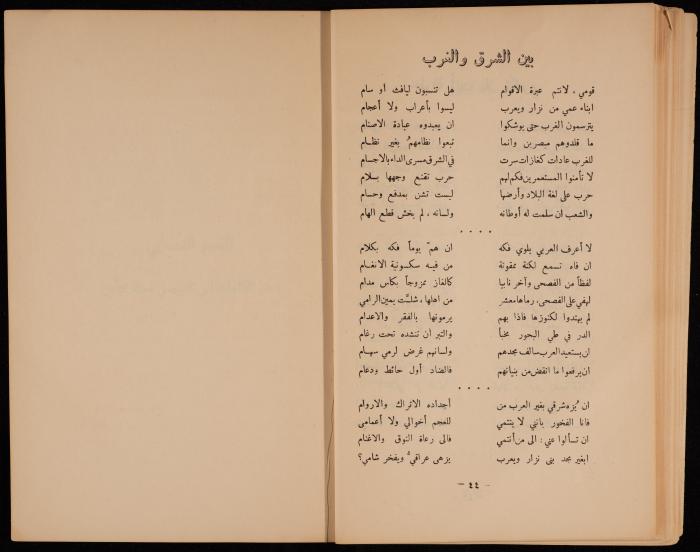 بين الشرق والغرب
قومي ، لانتم عبرة الاقوام هل تنسبون ليافث أو سام
ابناء عمي من نزار ويعرب ليسوا بأعراب ولا أعجام
يترسمون الغرب حتى يوشكوا ان يعبدوه عبادة الاصنام
ما قلدوهم مبصرين وانما تبعوا نظامهمُ بغير نظام
للغرب عادات كغازات سرت في الشرق مسرى الداء بالاجسام
لا تأمنوا المستعمرين فكم لهم حرب تقنع وجهها بسلام
حرب على لغة البلاد وأرضها ليست تشن بمدفع وحسام
والشعب ان سلمت له أوطانه ولسانه ، لم يخش قطع الهام
• • • •
لا أعرف العربي يلوي فكه ان همّ يوماً فكه بكلام
ان فاه تسمع لكنة ممقوتة من فيه سكسونية الانغام
لفظاً من الفصحى وآخر نابيا كالغاز ممزوجاً بكأس مدام
لهفي على الفصحى، رماها معشر من اهلها ، شلتّ يمين الرامي
لم يهتدوا لكنوزها فاذا بهم يرمونها بالفقر والاعدام
الدر في طي البحور مخبأ والتبر ان تنشده تحت رغام
ان يستعيد العرب سالف مجدهم ولسانهم غرض لرمي سهام
ان يرفعوا ما انقض من بنيانهم فالضاد أول حائط ودعام
• • • •
ان يُزه شرقي بغير العرب من أجداده الاتراك والاروام
فانا الفخور بانني لا ينتمي للعجم أخوالي ولا أعمامي
ان تسألوا عني : الى من أنتمي فالى رعاة النوق والاغنام
ابغير مجد بنى نزار ويعرب يزهى عراقيٌ ويفخر شامي ؟
– ٤٤ –